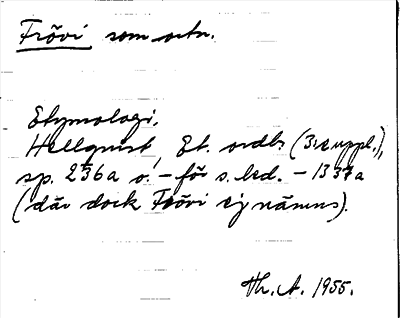 Frövi som ortn.
Etymologi,
Hellquist, Et. ordb. (3:e uppl.),
sp. 236a o. – för s. led. – 1337a
(där dock Frövi ej nämns).
Th. A. 1955.